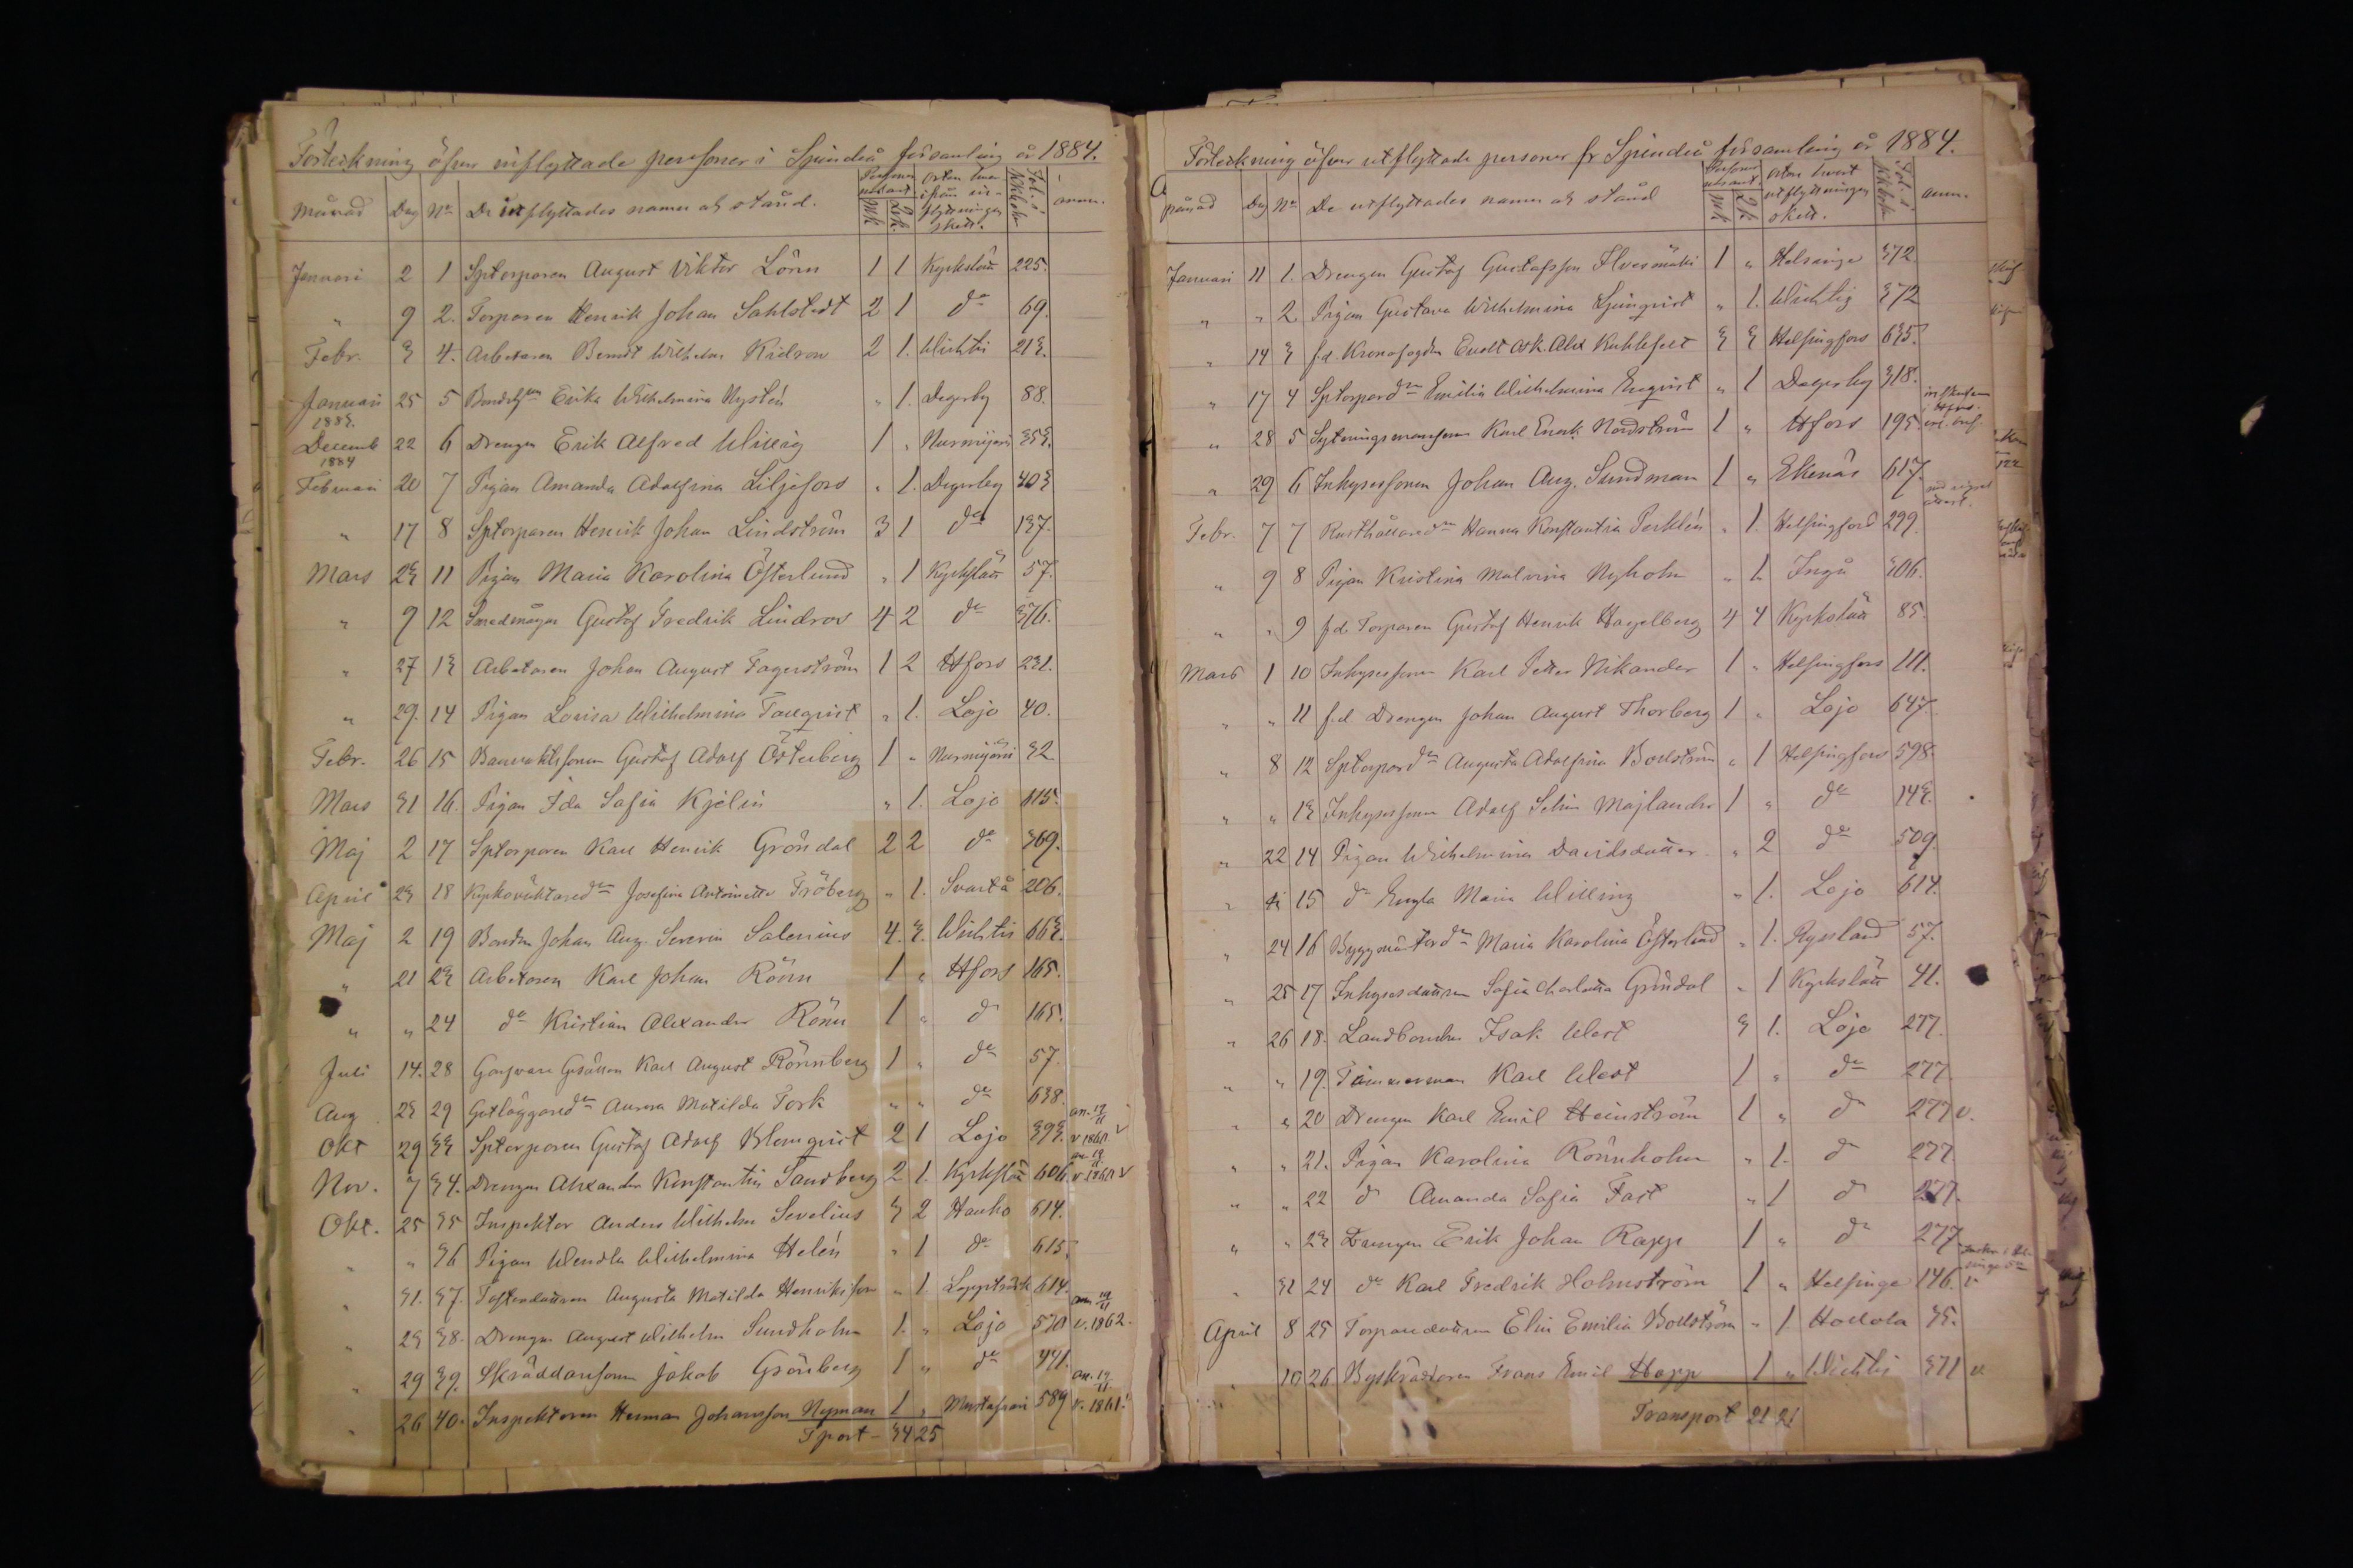 Förteckning öfver inflyttade personer i Sjundeå församling år 1884.
Månad Dag No De inflyttades namn och stånd. Personernas ant. Mk. Qk. Orten hvarifrån inflyttningen skett. Fol. i Kkboken anm.
Januari 2 1 Sptorparen August Viktor Lönn 1 1 Kyrkslätt 225.
" 9 2. Torparen Henrik Johan Sahlstedt 2 1 do 69.
Febr. 3 4. Arbetaren Berndt Wilhelm 2 1. Wichtis 213.
Januari 25 5 Erika Wilhelmina Nystén " 1. Degerby 88.
1883.
Decemb 22 6 Drengen Erik Alfred Willig 1 " Nurmijärvi 353.
1884
Februari 20 7 Pigan Amanda Adolfina Liljefors " 1. Degerby 403
" 17 8 Sptorparen Henrik Johan Lindström 3 1 do 137.
Mars 23 11 Pigan Maria Karolina Österlund " 1 Kyrkslätt 57.
" 9 12 Smedmågen Gustaf Fredrik Lindroos 4 2 do 376.
" 27 13 Arbetaren Johan August Fagerström 1 2 Hfors 231.
" 29. 14 Pigan Lovisa Wilhelmina Tallqvist " 1. Lojo 40.
Febr. 26 15 Banvaktssonen Gustaf Adolf Österberg 1 " Nurmijärvi 32
Mars 31 16. Pigan Ida Sofia Kjelin " 1. Lojo 115.
Maj 2 17 Sptorparen Karl Henrik Gröndal 2 2 do 369.
April 23 18 Kyrkoväktaredn Josefina Antoinette Fröberg " 1. Svartå 206.
Maj 2 19 Bonden Johan Aug. Severin Salenius 4. 3. Wichtis 663.
" 21 23 Arbetaren Karl Johan Rönn 1 " Hfors 165.
" " 24 do Kristian Alexander Rönn 1 " do 165.
Juli 14. 28 Garfvare Gesällen Karl August Rönnberg 1 " do 57.
Aug 23 29 Aurora Matilda Tork " " do 638.
Okt 29 33 Sptorparen Gustaf Adolf Blomqvist 2 1 Lojo 393. v 1860. v
Nov. 7 34. Drengen Alexander Konstantin Sandberg 2 1. Kyrkslätt 606. v 1860 v
Okt. 25 35 Inspektor Anders Wilhelm Sevelius 3 2 Hanko 614.
" " 36 Pigan Wendla Wilhelmina Helén " 1 do 615.
" 31. 37. Augusta Matilda Henriksson " 1. 614.
" 23 38. Drengen August Wilhelm Sundholm 1. " Lojo 570 v. 1862.
" 29 39. Skräddarsonen Jakob Grönberg 1 " do 441.
" 26 40. Inspektoren Herman Johansson Nyman 1 " 589 v. 1861.
Tport - 34 25
Förteckning öfver utflyttade personer fr Sjundeå församling år 1884.
Månad Dag No De utflyttades namn och stånd Personernas ant. Mk. Qk. Orten hvart utflyttningen skett. Fol. i Kkbok anm.
Januari 11 1. Drengen Gustaf Gustafsson Ilvesmäki 1 " Helsinge 372
" " 2. Pigan Gustava Wilhelmina Ljungqvist " 1. Wichtis 372
" 14 3 f.d. Kronofogden Osk. Alex Kuhlefelt 3 3 Helsingfors 635.
" 17 4 Sptorpardn Emilia Wilhelmina Engvist " 1 Degerby 318.
" 28 5 Sytningsmansonen Karl Enok Nordström 1 " Hfors 195
" 29 6 Inhysessonen Johan Aug. Sundman 1 " Ekenäs 617.
Febr. 7 7 Rusthållaredn Hanna Konstantia Perklén " 1. Helsingfors 299.
" 9 8 Pigan Kristina Malvina Nyholm " 1. Ingå 306.
" " 9 f.d. Torparen Gustaf Henrik Hagelberg 4 4 Kyrkslätt 85.
Mars 1 10 Inhysessonen Karl Petter Nikander 1 " Helsingfors 111.
" " 11 f.d. Drengen Johan August Thorberg 1 " Lojo 647.
" 8 12 Sptorpardn Augusta Adolfina Bollström " 1 Helsingfors 598.
" " 13 Inhysessonen Adolf Selim Majlander 1 " do 143.
" 22 14 Pigan Wilhelmina Davidsdotter " 2 do 509.
" 15 do Engla Maria Willing " 1. Lojo 614.
" 24 16 Maria Karolina Österlund " 1. Ryssland 57.
" 25 17 Inhysesdottern Sofia Charlotta Gröndal " 1 Kyrkslätt 41.
" 26 18. Landbonden Isak West 3 1. Lojo 277.
" " 19. Timmerman Karl West 1 " do 277.
" " 20 Drengen Karl Emil Heinström 1 " do 277 v.
" " 21. Pigan Karolina Rönnholm " 1. do 277.
" " 22 do Amanda Sofia Fast " 1 do 277.
" " 23 Drengen Erik Johan Rapp 1 " do 277.
" 31 24 do Karl Fredrik Holmström 1 " Helsinge 146. v
April 8 25 Torparedottern Elin Emilia Bollström " 1 Hollola 35.
" 10 26 Byskräddaren Frans Emil Hopp 1 " Wichtis 371 v
Transport 21 21